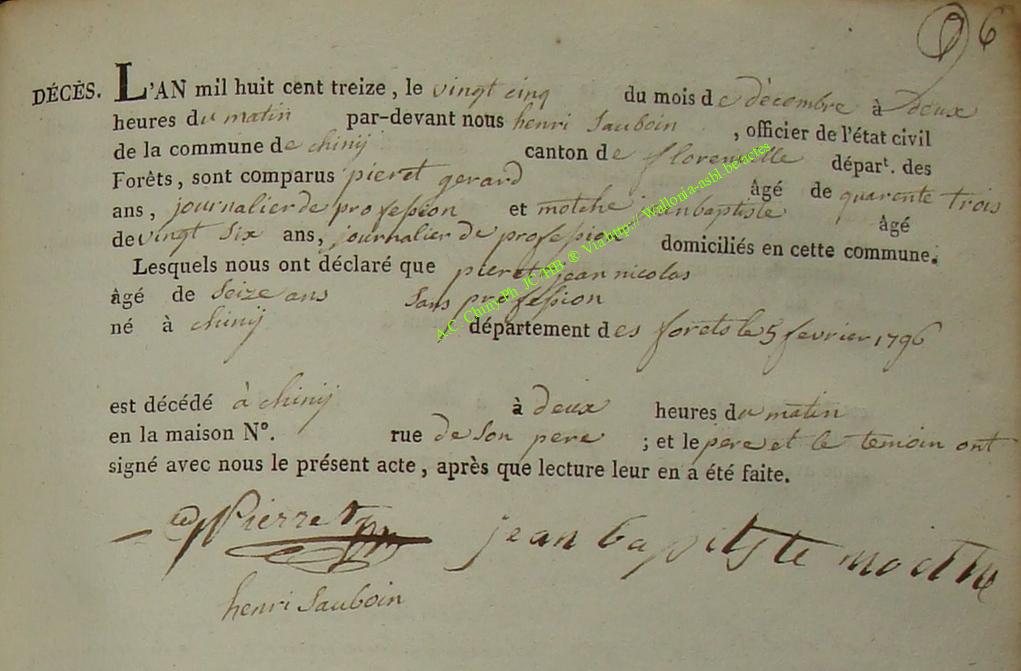 96
DÉCÈS. L'AN mil huit cent treize, le vingt cinq du mois de décembre à deux
heures du matin par-devant nous henri Sauboin, officier de l'état civil
de la commune de chinij canton de florenville départ. des
Forêts, sont comparus pieret gerard âgé de quarente trois
ans, journalier de profession et motché jeanbaptiste âgé
de vingt six ans, journalier de profession domiciliés en cette commune.
Lesquels nous ont déclaré que pieret jean nicolas
âgé de Seize ans Sans profession
né à chinij département des forets le 5 fevrier 1796
est décédé à chinij à deux heures du matin
en la maison N°. rue de son pere ; et le pere et le temoin ont
signé avec nous le présent acte, après que lecture leur en a été faite.
Pierret jean baptiste
henri Sauboin
A.C. Chiny Ph. JC/HH ® Via http://Wallonia-asbl.be:actes